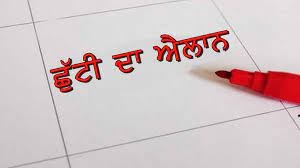 ਛੁੱਟੀ ਦਾ ਐਲਾਨ